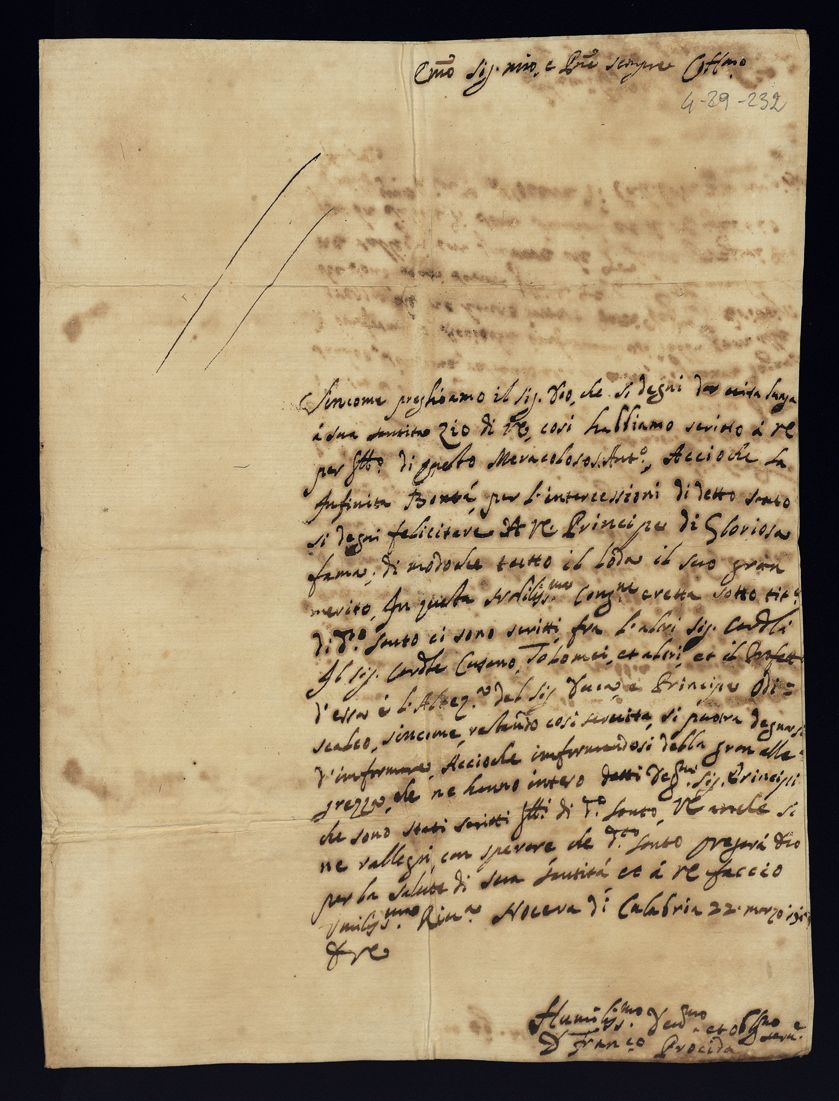 Emõ Sig. mio, e Prẽ sempre Coll.mo
4-29-232
Sincome preghiamo il Sig. Dio, che si degni dar vita lunga
à sua Santità Zio di VE, così habbiamo scritto à VE
per fttõ. di questo Meracoloso S. Ant.o, Accioche la
Infinita Bontà, per l'intercessioni di detto Santo
si degni felicitare A VE Principe di Gloriosa
fama, di modoche tutto il loda il suo gran
merito, In questa Cong.ne eretta sotto
di d.to Santo ci sono scritti fra l'altri Sig. Cardli
Il Sig. Cardle Cusano, Tolomei, et altri, et il Prefett
d'essa è l'Altez.a del Sig Duca, e Principe Odi=
scalco, sincome, restando così servita, si puotrà degnarsi
d'informare, Accioche informandosi della gran alle=
grezza, che ne hanno inteso detti Sig. Principi
che sono stati scritti fttĩ. di d.to Santo, VE anche si
ne rallegri, con sperare che d.to Santo pregarà Dio
per la Salute di sua Santità et à VE faccio
Riu.a Nocera di Calabria 22 marzo
D VE
Humiliss.mo et oblig.mo
D Fran.co Procida